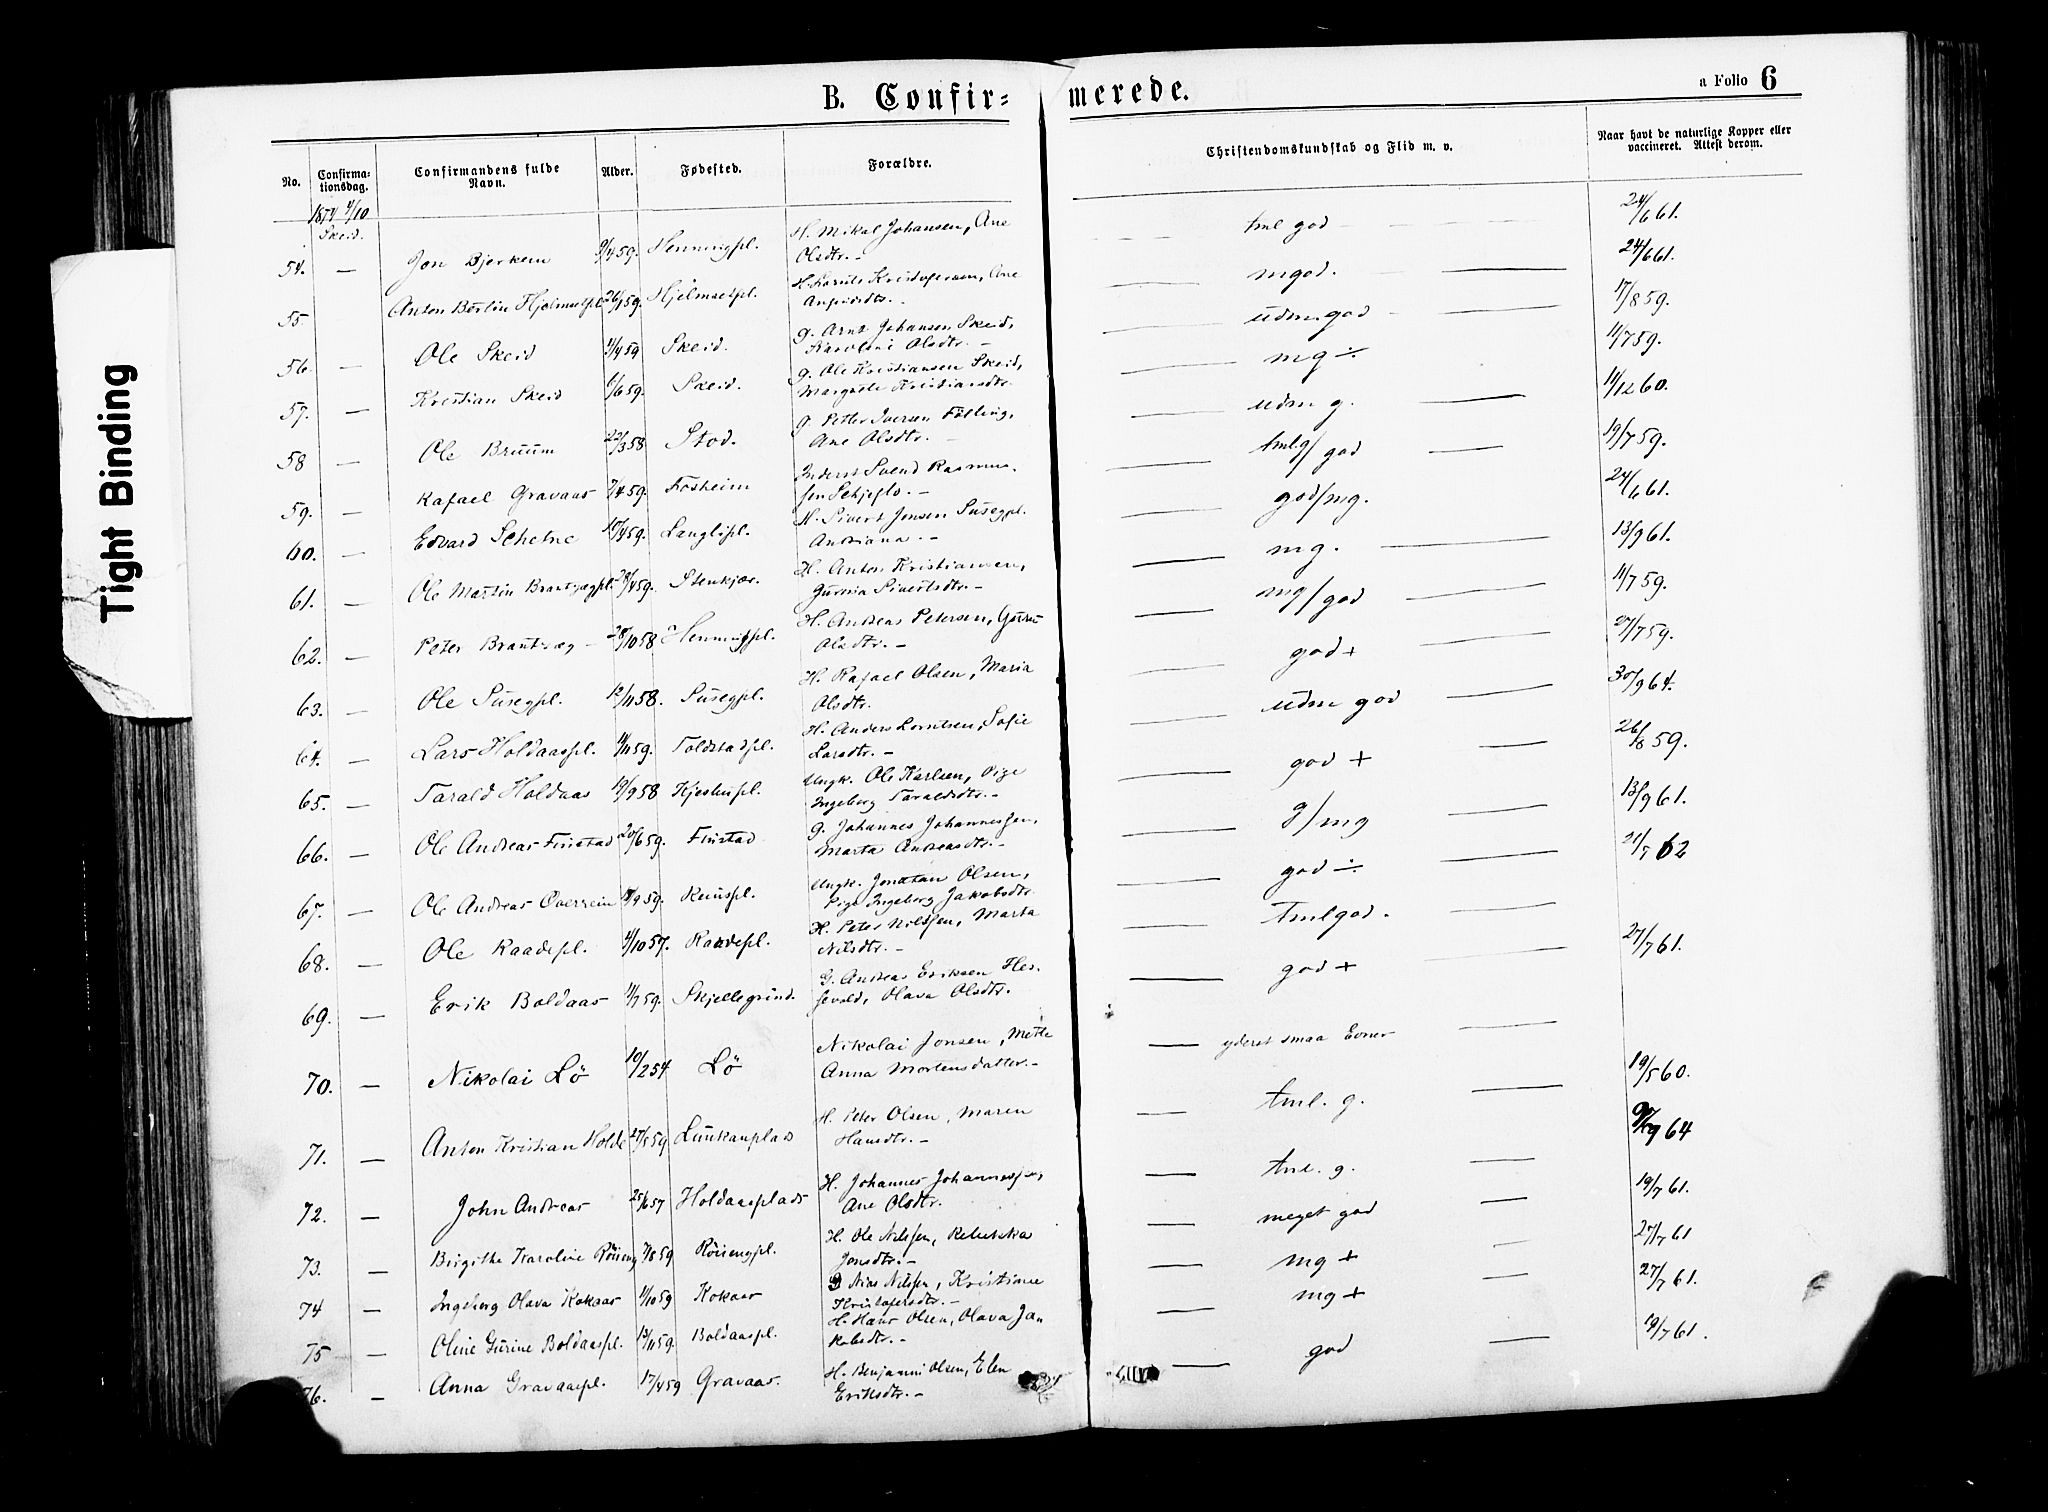 Tight Binding
B. Confir-
merede.
a Folio 6
No.
Confirma-
tionsdag.
Confirmandens fulde
Navn.
Alder.
Fødested.
Forældre.
Christendomskundskab og Flid m. v.
Naar havt de naturlige Kopper eller
vaccineret. Attest derom.
1874 4/10
Skeid.
54. — Jon Bjerkem 9/4 59. Henningpl. H. Mikal Johansen, Ane
Olsdtr. — tml god 24/6 61.
55 Anton Bertin Hjelmsetpl 26/1 59. Hjelmsetpl. H. Kristofersen, Ane
mgod. 24/6 61.
56 — Ole Skeid 4/4 59 Skeid. g. Arnt Johansen Skeid,
Karoline Olsdtr. — udm. god 17/8 59.
57. — Kristian Skeid 6/6 59. Skeid. g. Ole Kristiansen Skeid,
Margrete Kristiansdtr. mg ÷ 11/7 59.
58 — Ole Bruum 22/3 58 Stod. g. Petter Iversen Følling,
Ane Olsdtr. — udm g. 14/12 60.
59. — Rafael Gravaas 7/4 59. Fosheim Inderst Svend Rasmus-
sen Schjeflo. — tml.g/god 19/7 59.
60. — Edvard Schetne 10/4 59. Langlipl. H. Sivert Jensen Susegpl.
Andriana. — god/mg. 24/6 61.
61. — Ole Martin Brantsægpl. 28/4 59. Stenkjær. H. Anton Kristiansen,
Gurina Sivertsdtr. — mg. 13/9 61.
62. — Peter Brantsæg — 28/10 58 Henningpl. H. Andreas Petersen, Guru
Olsdtr. — mg/god 11/7 59.
63. — Ole Susegpl. 12/11 58. Susegpl. H. Rafael Olsen, Maria
Olsdtr. god + 27/7 59.
64. — Lars Holdaaspl. 14/11 59. Toldstadpl. H. Anders Lorntsen, Sofie
Larsdtr. — udm god 30/9 64.
65. — Tarald Holdaas 19/9 58 Kjeshuspl. Ungk. Ole Karlsen, Pige
Ingeborg Taraldsdtr. — god + 26/8 59.
66. — Ole Andreas Finstad 20/6 59. Finstad g. Johannes Johannessen,
Marta Andreasdtr. — g/mg 13/9 61.
67. — Ole Andreas Oversein 8/9 59. Reinspl. Ungk. Jonatan Olsen,
Pige Ingeborg Jakobsdtr. god ÷ 21/7 62
68. — Ole Raadepl. 4/10 57. Raadepl. H. Peter Nilssen, Marta
Nilsdtr. — Tmlgod.
69. — Erik Boldaas 11/7 59. Skjellegrind. G. Andreas Eriksen Hes-
sevold, Olava Olsdtr. god + 27/7 61.
70. — Nikolai Lö 10/2 54 Lö Nikolai Jonsen, Mette
Anna Mortensdatter. — yderst smaa Evner
71. — Anton Kristian Holde 27/5 59 Luukanplads H. Peter Olsen, Maren
Hansdtr. — tml. g. 19/5 60.
72. — John Andreas 25/6 57 Holdaasplads H. Johannes Johannessen,
Ane Olsdtr. tml. g. 9 64
73. — Birgithe Karoline Röiseng 7/8 59 Röisengpl. H. Ole Nilssen, Rebekka
Jonsdtr. — meget god 19/7 61.
74 — Ingeborg Olava Kokaas 1/10 59 Kokaas Nils Nilssen, Kristiane
Kristofersdtr. — mg + 27/7 61
75 — Oline Gurine Boldaaspl. 13/11 59. Boldaaspl. H. Hans Olsen, Olava Ja-
kobsdtr. — mg + 27/7 61.
76. — Anna Gravaaspl. 17/4 59 Gravaas. H. Benjamin Olsen, Elen
Eriksdtr. — god 19/7 61.